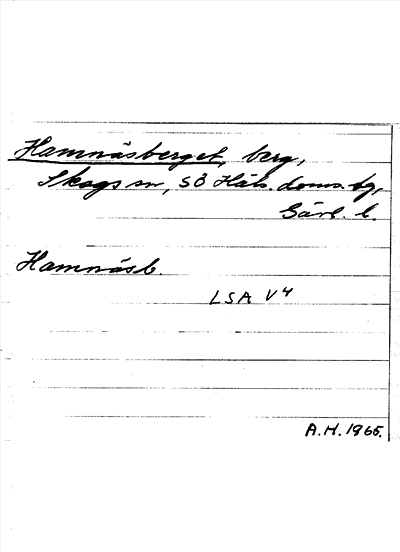 Hamnäsberget, berg,
Skogs sn, SÖ Häls. doms.bg,
Gävl. l.
Hamnäsb.
LSA V4
A.H. 1965.